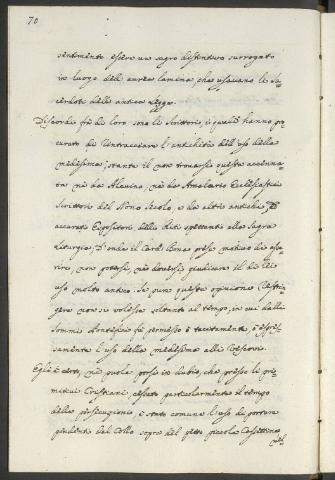 70
sentimento essere un sagro distintivo surrogato
in luogo dell'aurea lamina, che usavano li Sa-
cerdoti dell'antica Legge.
Discordi frà di loro sono li Scrittori, i quali hanno pro-
curato di rintracciare l'antichità dell'uso della
medesima; stante il non trovarsi questa accenna-
ta nè da Alcuino, nè da Amalario Ecclesiastici
Scrittori del Nono Secolo, e da altri antichi, ed
accurati Espositori delli Riti spettanti alla Sagra
Liturgia; D'onde il Card. Bona prese motivo di asse-
rire, non potersi, nè doversi giudicare il di lei
uso molto antico. Se pure questa opinione restrin-
gere non si volesse soltanto al tempo, in cui dalli
Sommi Pontefici fù permesso ò tacitamente, ò espres-
samente l'uso della medesima alli Vescovi.
Egli è certo, nè puole porsi in dubio, che presso li pri-
mitivi Cristiani, cessato particolarmente il tempo
della persecuzione, è stato comune l'uso di portare
pendenti dal Collo sopra del petto piccole Cassettine